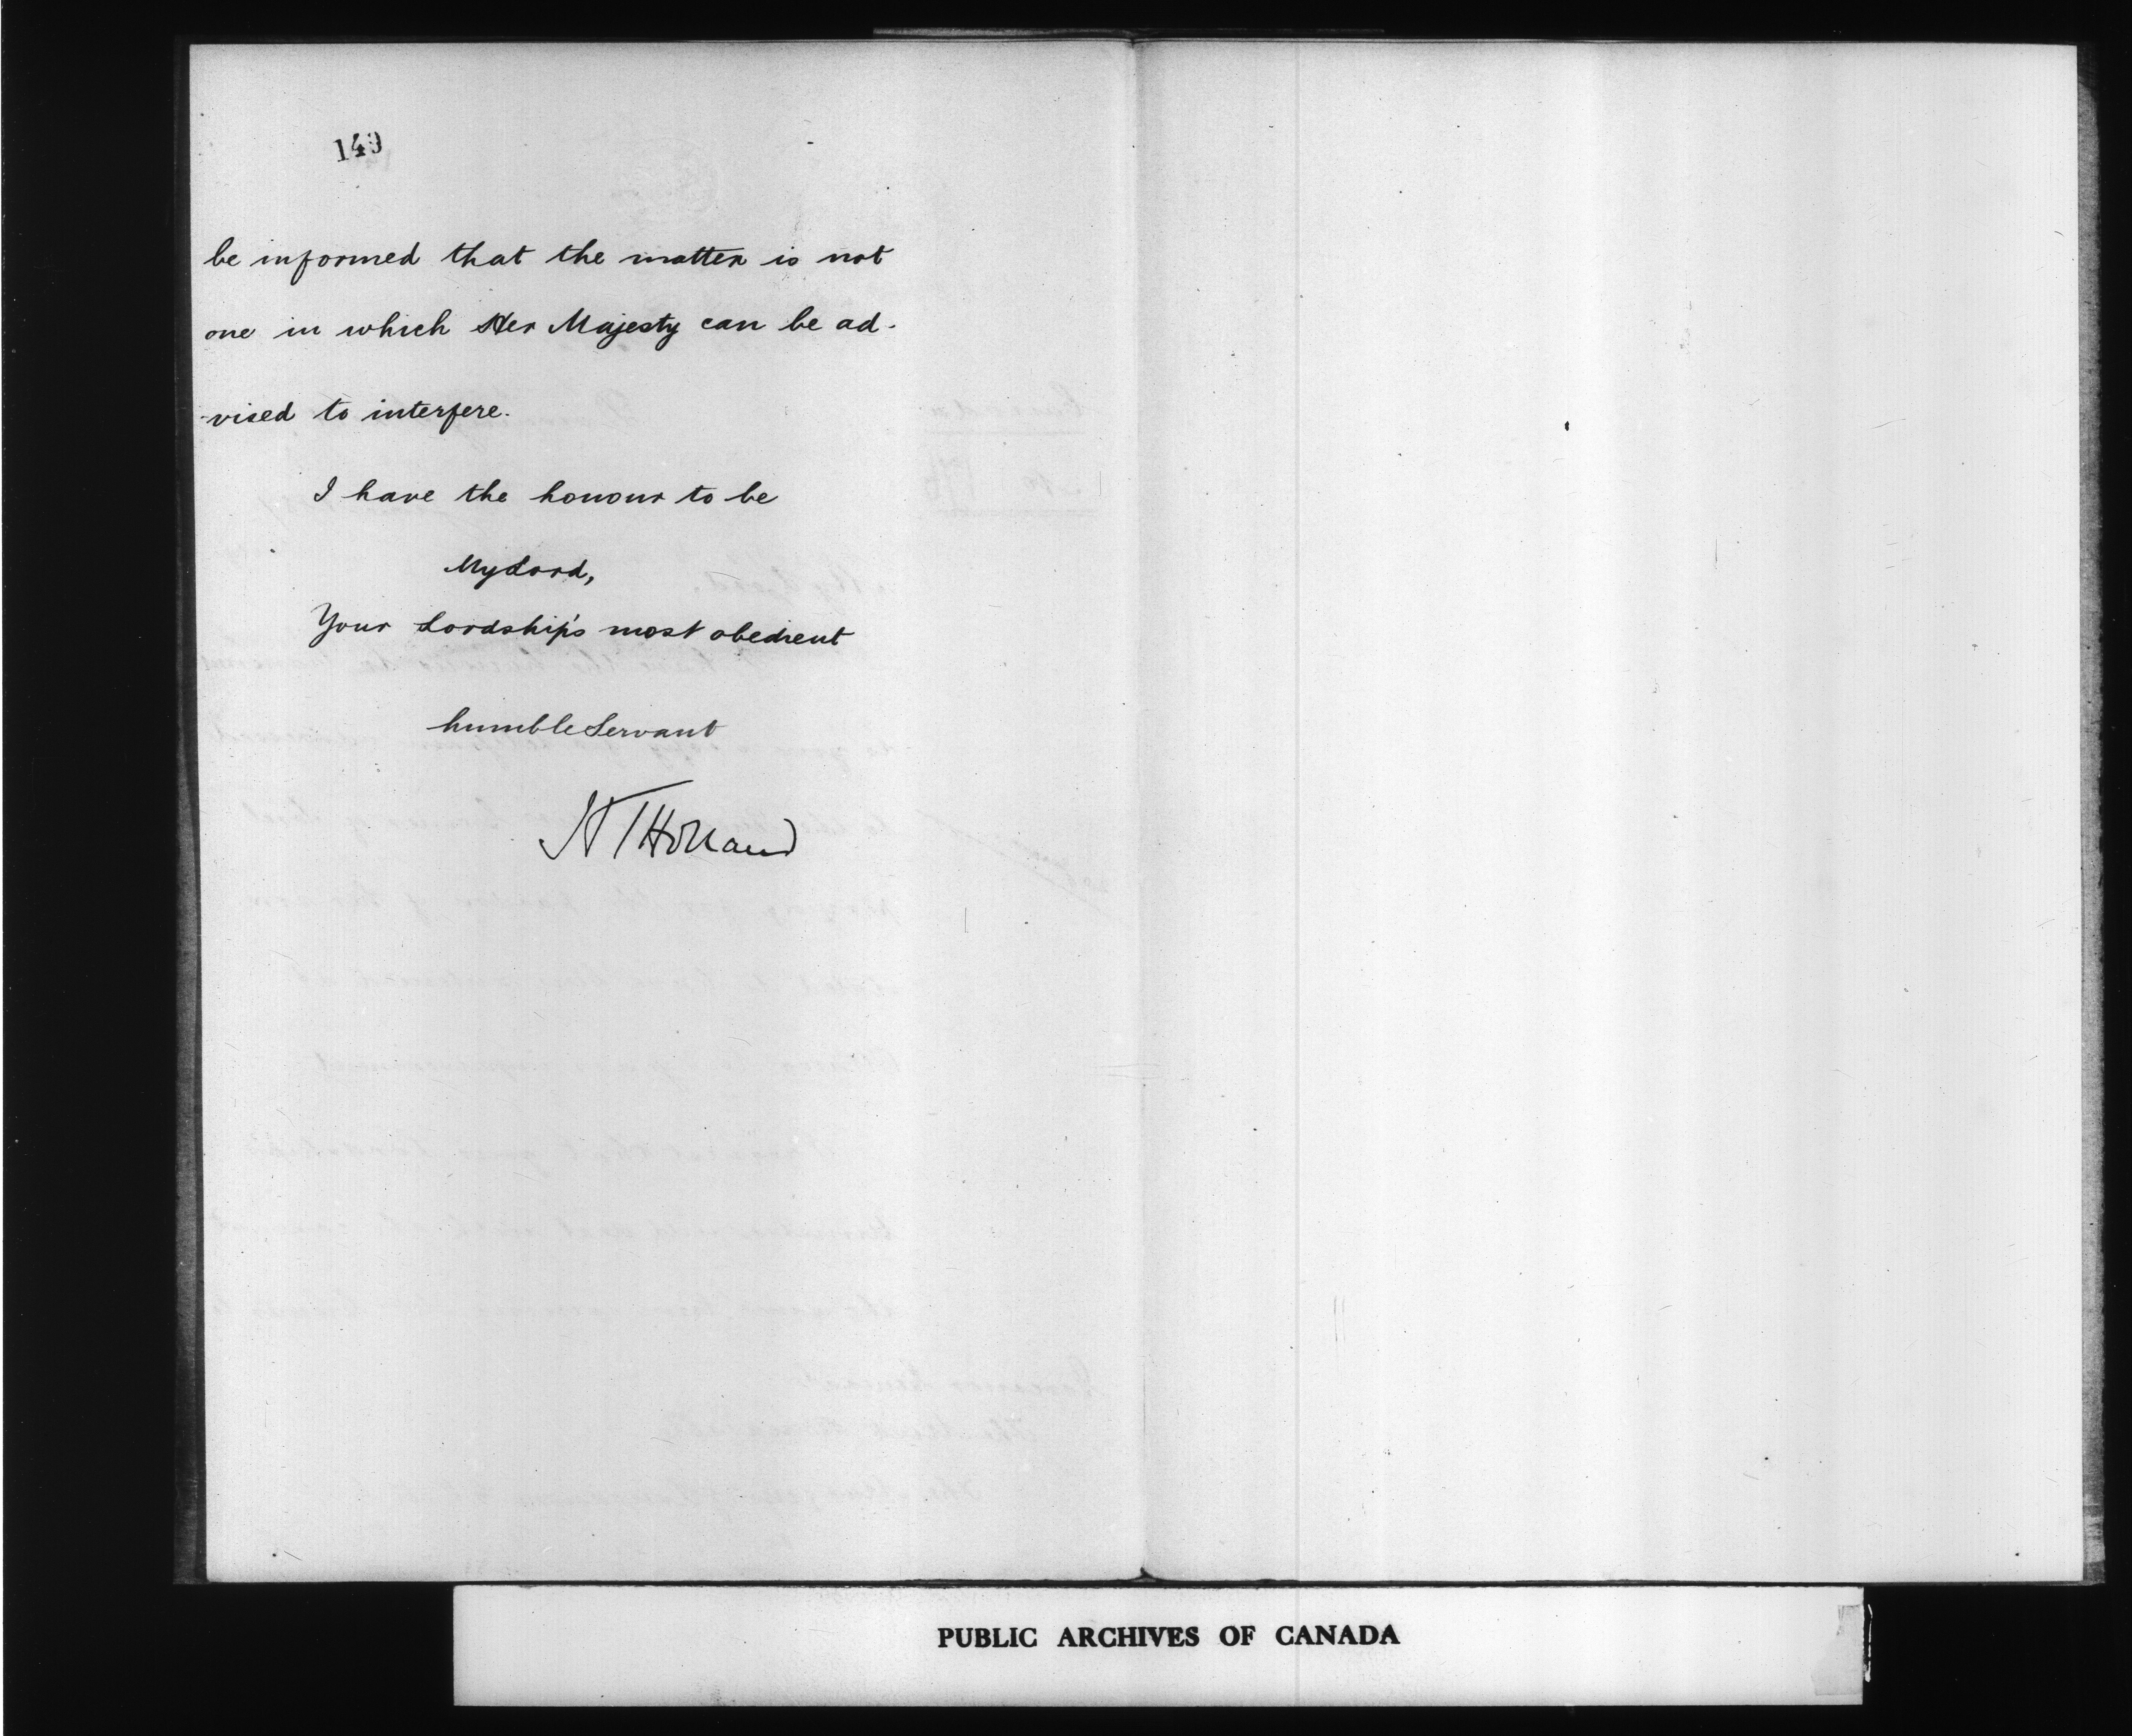 149
be informed that the matter is not
one in which Her Majesty can be ad-
-vised to interfere.
I have the honour to be
My Lord,
Your Lordship's most obedient
humble Servant
H T Holland
PUBLIC ARCHIVES OF CANADA